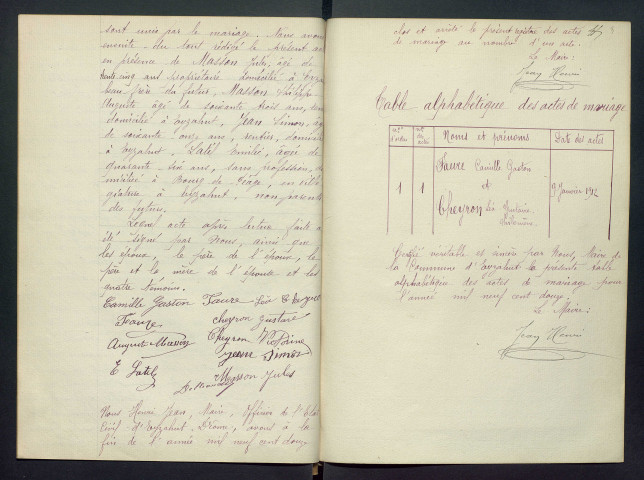 sont unis par le mariage. Nous avons
ensuite du tout rédigé le présent acte
en présence de Masson Jules, âgé de
trente cinq ans propriétaire domicilié à
beau-frère du futur, Masson
Auguste âgé de soixante trois ans,
domicilié à Eyzahut, Jean Simon,
de soixante onze ans, rentier, domicilié
à Eyzahut, Latil Emilie, âgée de
quarante six ans, sans profession, do-
miciliée à Bourg de Péage, en villé-
giature à Eyzahut, non parents
des futurs.
acte après lecture faite a
été signé par Nous, ainsi que
les époux, le père de l'époux, le
père et la mère de l'épouse et les
quatre témoins.
Camille Gaston Faure Léa Cheyron
Faure Cheyron Gustave
August Masson Cheyron Victorine
Jean Simon
E Latil Masson Jules
Nous Henri Jean, Maire, Officier de l'Etat
Civil d'Eyzahut Drôme, avons à la
fin de l'année mil neuf cent douze
clos et arrêté le présent registre des actes
de mariage au nombre d'un acte.
Le Maire:
Jean Henri
Table alphabétique des actes de mariage
Nos d'ordre Nos des actes Noms et prénoms Date des actes
1 1 Faure Camille Gaston
et
Cheyron Léa
9 Janvier 1912
Certifié véritable et sincère par Nous, Maire de
la Commune d'Eyzahut la présente table
alphabétique des actes de mariage pour
l'année mil neuf cent douze.
Le Maire:
Jean Henri